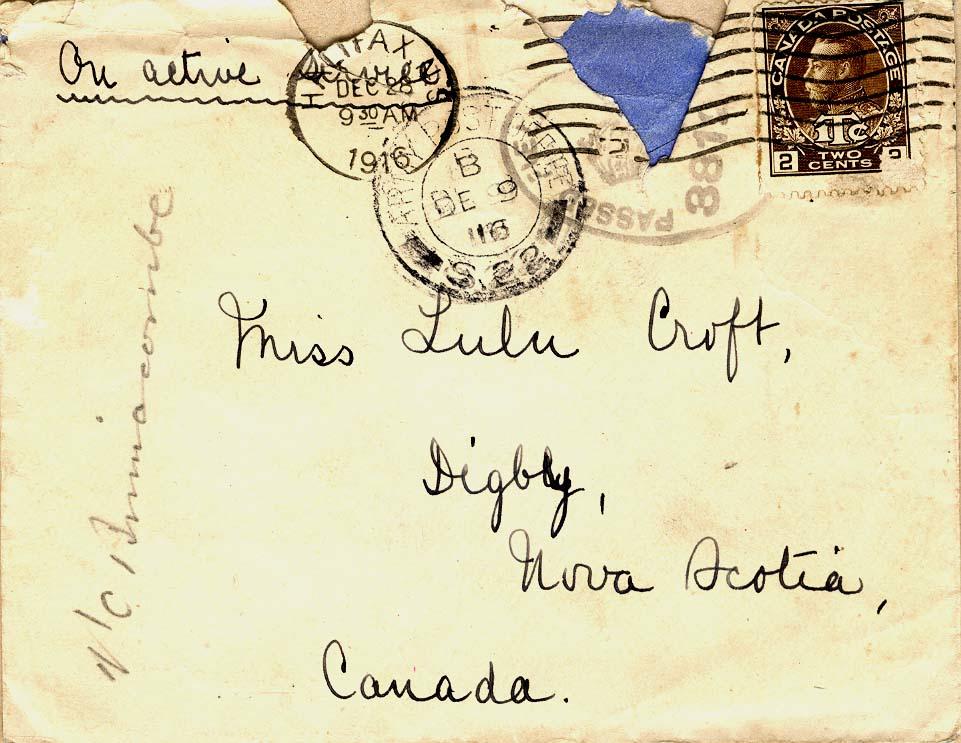 On active service
HALIFAX
DEC 28
9 30 AM
1916
N.S.
ARMY POST OFFICE
B
DE 9
16
S.22
PASSED
387
CANADA POSTAGE
1Tc
2 TWO CENTS 2
Miss Lulu Croft,
Digby,
Nova Scotia,
Canada.